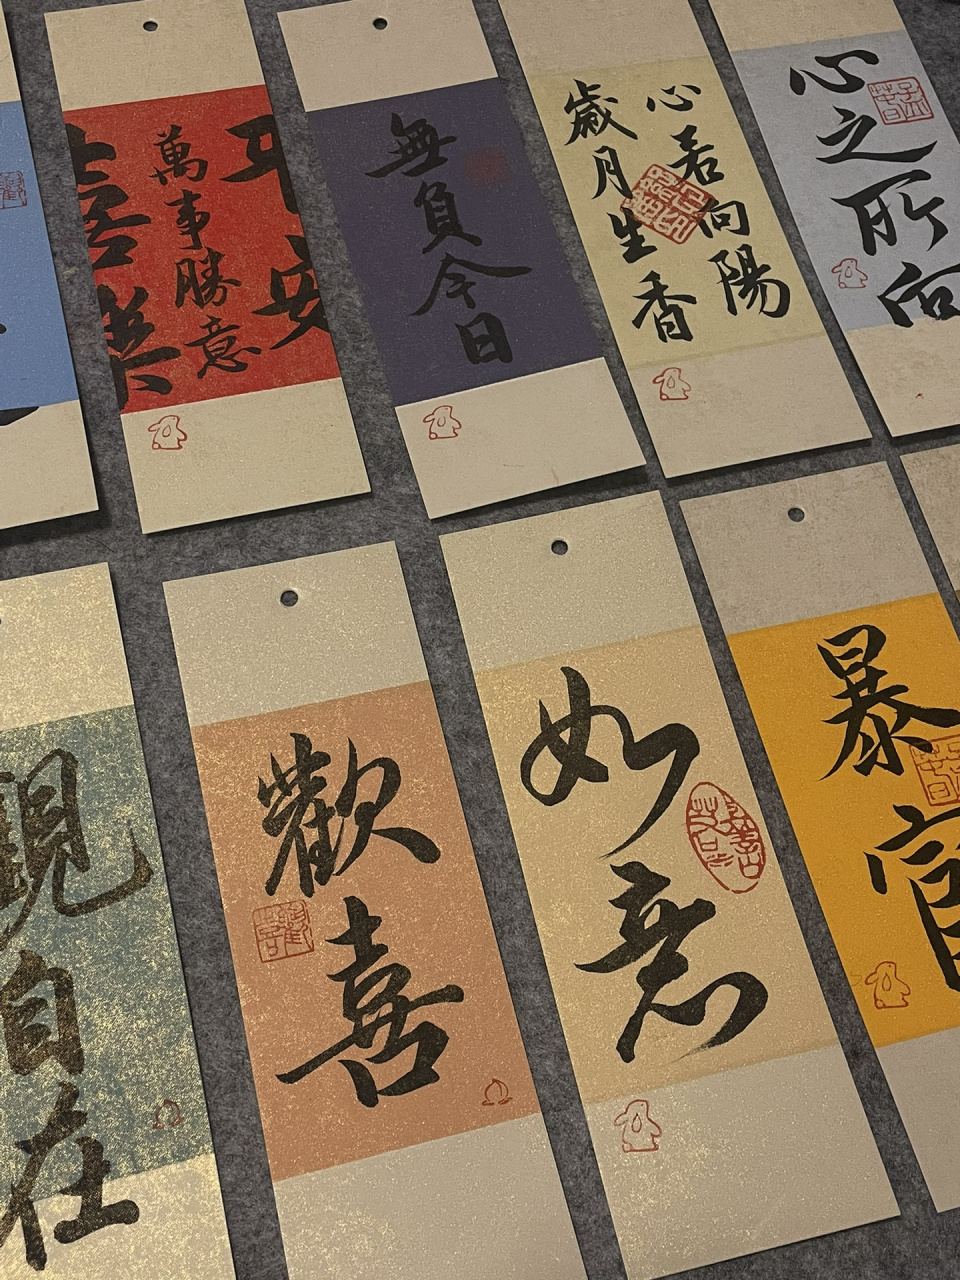 平安
萬事勝意
喜樂
無負今日
心若向陽
歲月生香
心之所向
觀自在
歡喜
如意
暴